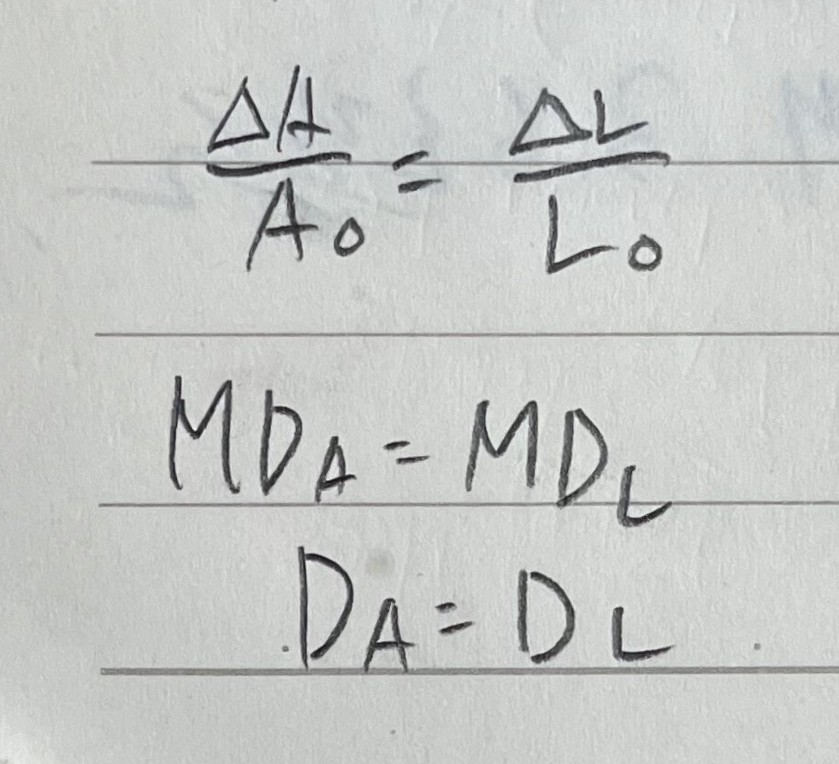 ΔA/A₀ = ΔL/L₀
MD_A = MD_L
D_A = D_L